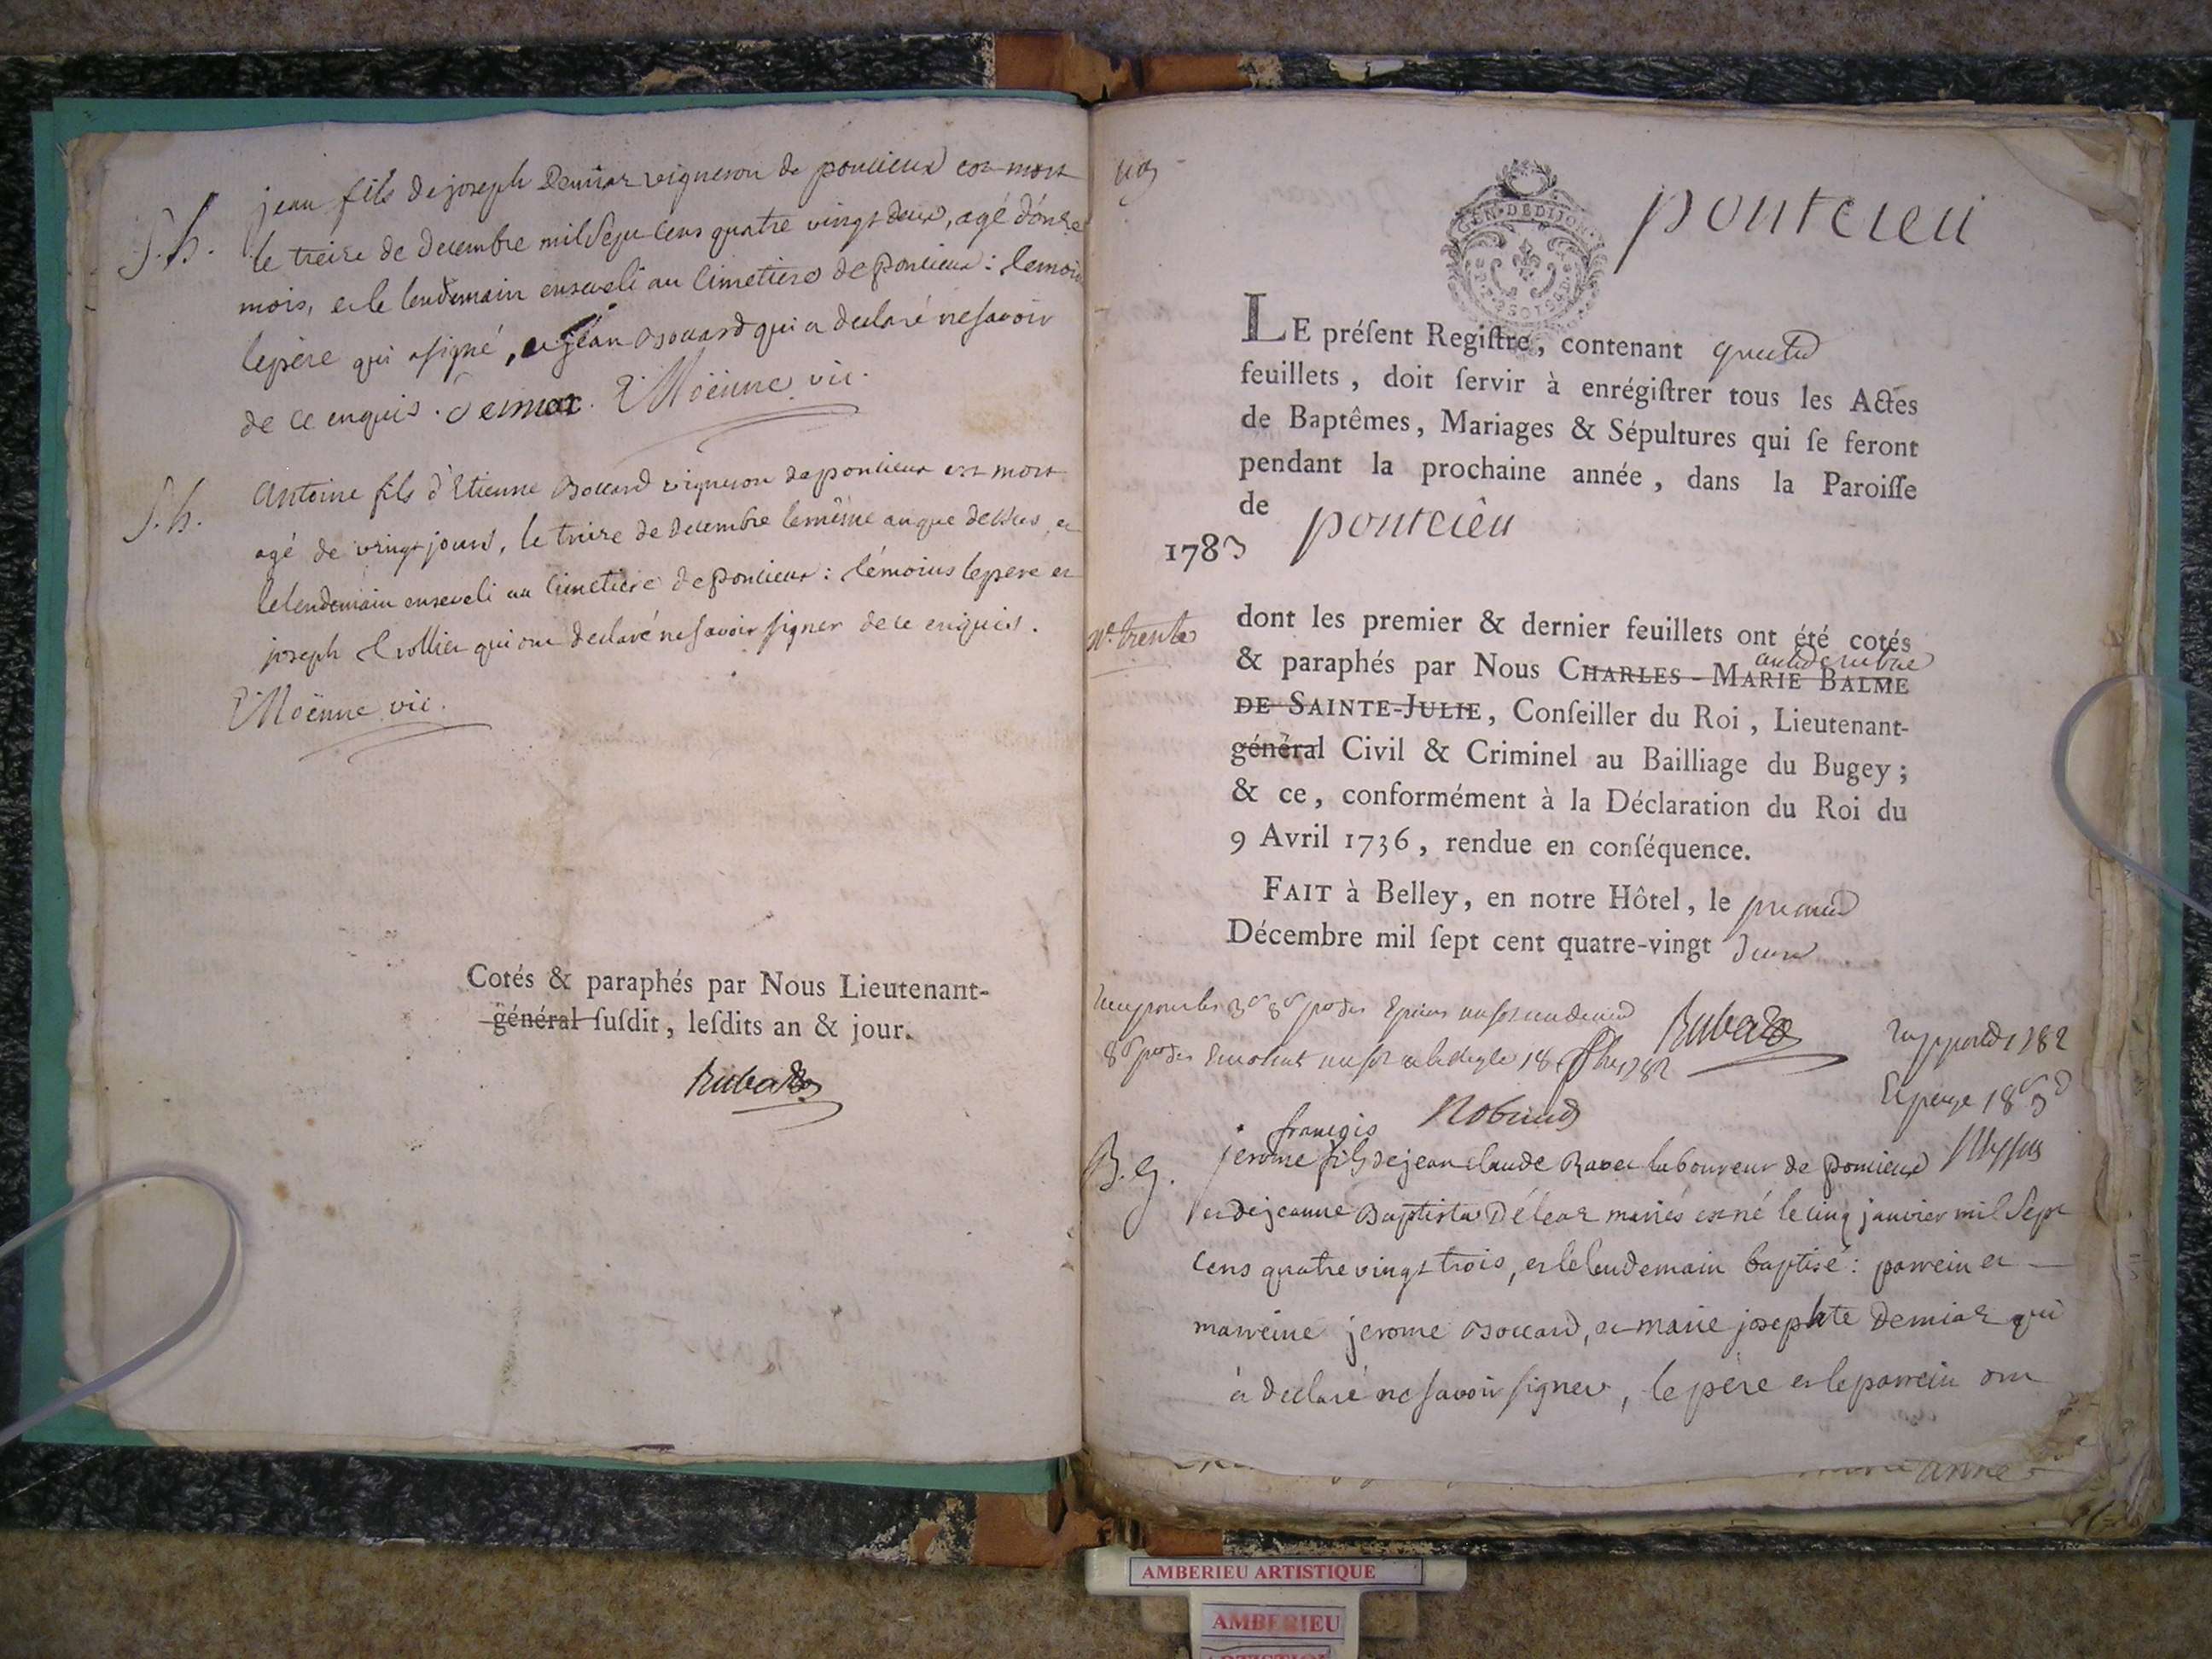 S. h.
jean fils de joseph Demiaz vigneron de poncieux est mort
le treize de decembre mil sept cens quatre vingt deux, agé d'onze
mois, et le lendemain enseveli au cimetiere de poncieux : temoins
le père qui a signé, et Jean Bouard qui a declaré ne savoir
de ce enquis. Demiaz. Moënne vic.
S. h.
Antoine fils d'Etienne Boccard vigneron de poncieux est mort
agé de vingt jours, le treize de decembre le même an que dessus, et
le lendemain enseveli au cimetiere de poncieux : témoins le pere et
joseph Crollier qui ont declaré ne savoir signer de ce enquis.
Moënne vic.
Cotés & paraphés par Nous Lieutenant-
général susdit, lesdits an & jour.
Rubat
pontcieu
GEN. DE DIJON
LE préſent Regiſtre, contenant quatre
feuillets, doit ſervir à enrégiſtrer tous les Actes
de Baptêmes, Mariages & Sépultures qui ſe feront
pendant la prochaine année, dans la Paroiſſe
de pontcieu
1783
N.º trente
dont les premier & dernier feuillets ont été cotés
& paraphés par Nous CHARLES-MARIE BALME
DE SAINTE-JULIE, Conſeiller du Roi, Lieutenant-
général Civil & Criminel au Bailliage du Bugey ;
& ce, conformément à la Déclaration du Roi du
9 Avril 1736, rendue en conſéquence.
FAIT à Belley, en notre Hôtel, le premier
Décembre mil ſept cent quatre-vingt deux
Rubat
1782
françois
B. g.
jerome fils de jean claude Ravet laboureur de poncieux
et de jeanne Baptista Déléaz mariés est né le cinq janvier mil sept
cens quatre vingt trois, et le lendemain baptisé : parrein et
marreine jerome Boccard, et marie josephte Demiaz qui
a declaré ne savoir signer, le père et le parrein ont
anne
AMBERIEU ARTISTIQUE
AMBERIEU
ARTISTIQUE